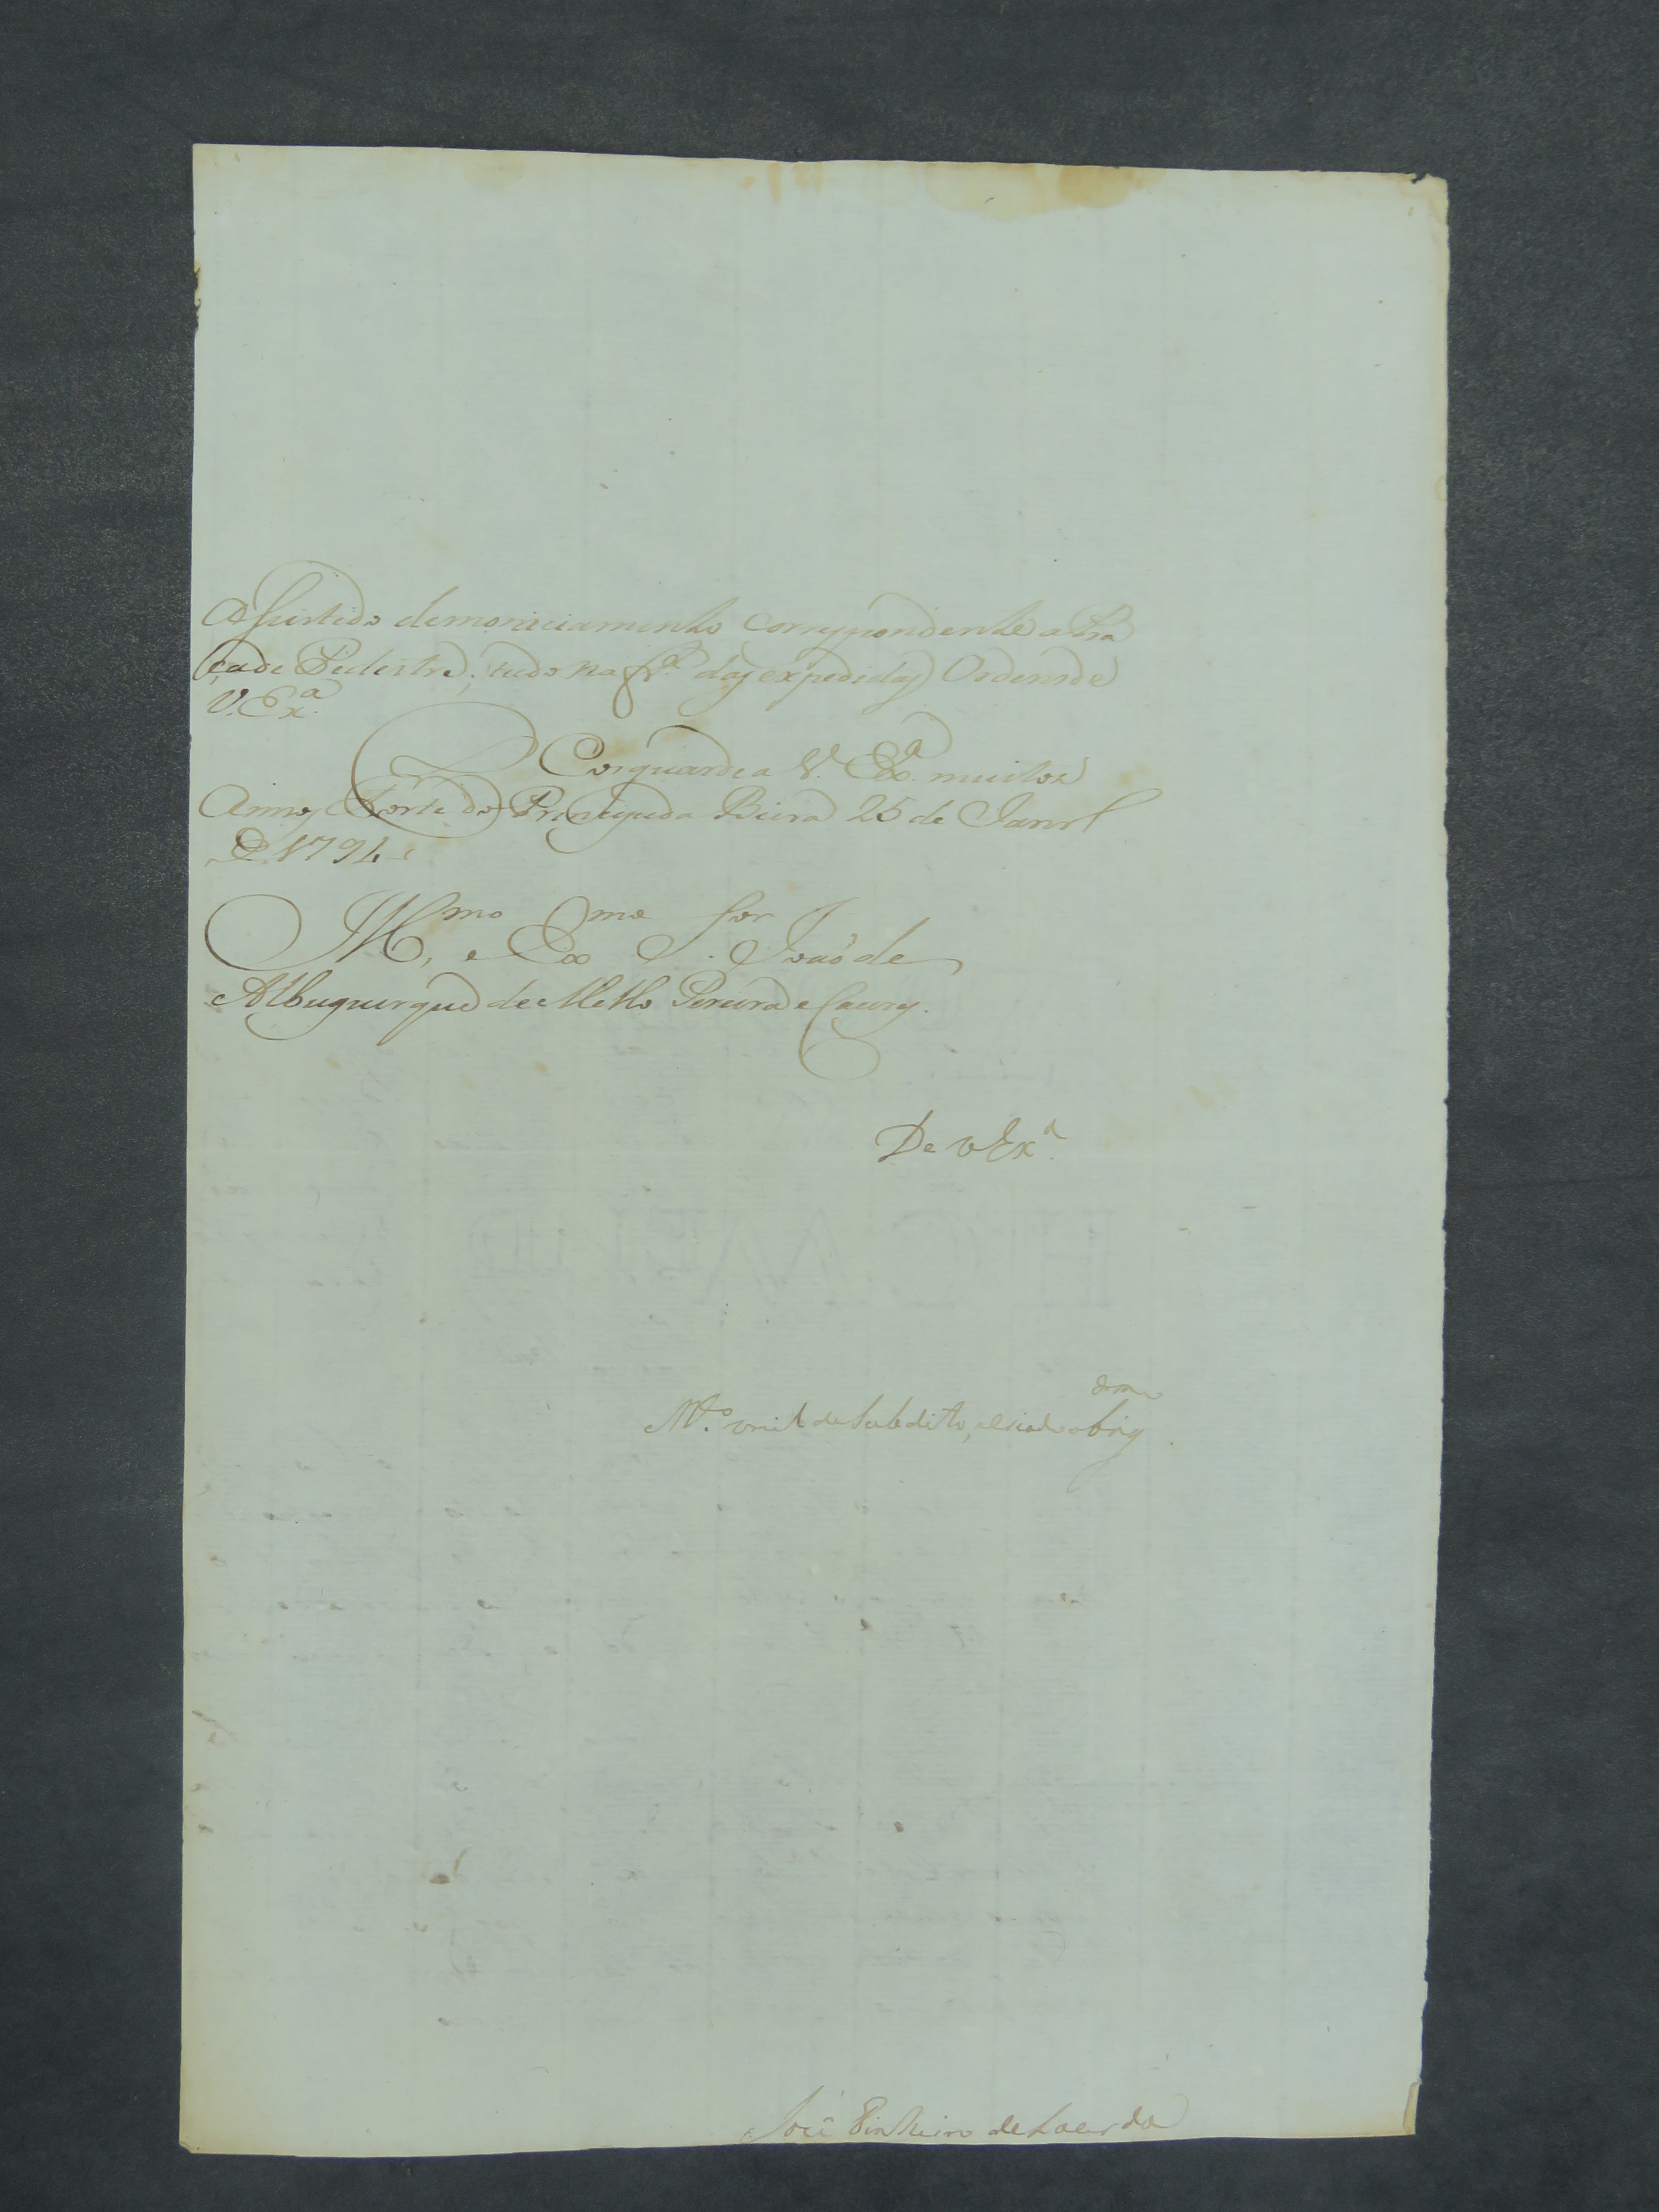 Asurtido demoniciamento correspondente a Pra
ça de Pedestre; tudo na fr.ª das expedidas Ordens de
V. Ex.ª
Deos guarde a V. Ex.ª muitos
Annos Forte do Principe da Beira 25 de Janr.º
de 1794
Ill.mo e Ex.mo S.or João de
Albuquerque de Mello Pereira e Caceres.
De V Ex.ª
M.to de Subdito, e criado obrig.dmo
José Pinheiro de Lacerda